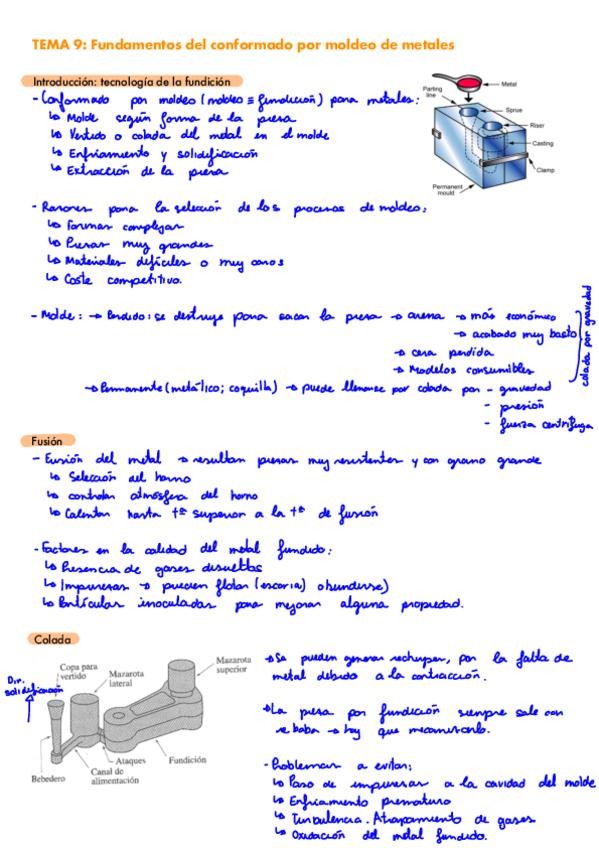 TEMA 9: Fundamentos del conformado por moldeo de metales
Introducción: tecnología de la fundición
- Conformado por moldeo (moldeo ≡ fundición) para metales:
↳ Molde según forma de la pieza
↳ Vertido o colada del metal en el molde
↳ Enfriamiento y solidificación
↳ Extracción de la pieza
Metal
Parting line
Sprue
Riser
Casting
Clamp
Permanent mould
- Razones para la selección de los procesos de moldeo:
↳ Formas complejas
↳ Piezas muy grandes
↳ Materiales difíciles o muy caros
↳ Coste competitivo.
- Molde: → Perdido: se destruye para sacar la pieza → arena → más económico
→ acabado muy basto
→ cera perdida
→ Modelos consumibles
colada por gravedad
→ Permanente (metálico; coquilla) → puede llenarse por colada por - gravedad
- presión
- fuerza centrífuga
Fusión
- Fusión del metal → resultan piezas muy resistentes y con grano grande
↳ Selección del horno
↳ controlar atmósfera del horno
↳ Calentar hasta tª superior a la tª de fusión
- Factores en la calidad del metal fundido:
↳ Presencia de gases disueltos
↳ Impurezas → pueden flotar (escoria) o hundirse)
↳ Partículas inoculadas para mejorar alguna propiedad.
Colada
Dir. solidificación
Copa para vertido
Mazarota lateral
Mazarota superior
Bebedero
Canal de alimentación
Ataques
Fundición
→ Se pueden generar rechupes, por la falta de
metal debido a la contracción.
→ La pieza por fundición siempre sale con
rebaba → hay que mecanizarlo.
- Problemas a evitar:
↳ Paso de impurezas a la cavidad del molde
↳ Enfriamiento prematuro
↳ Turbulencia. Atrapamiento de gases
↳ Oxidación del metal fundido.